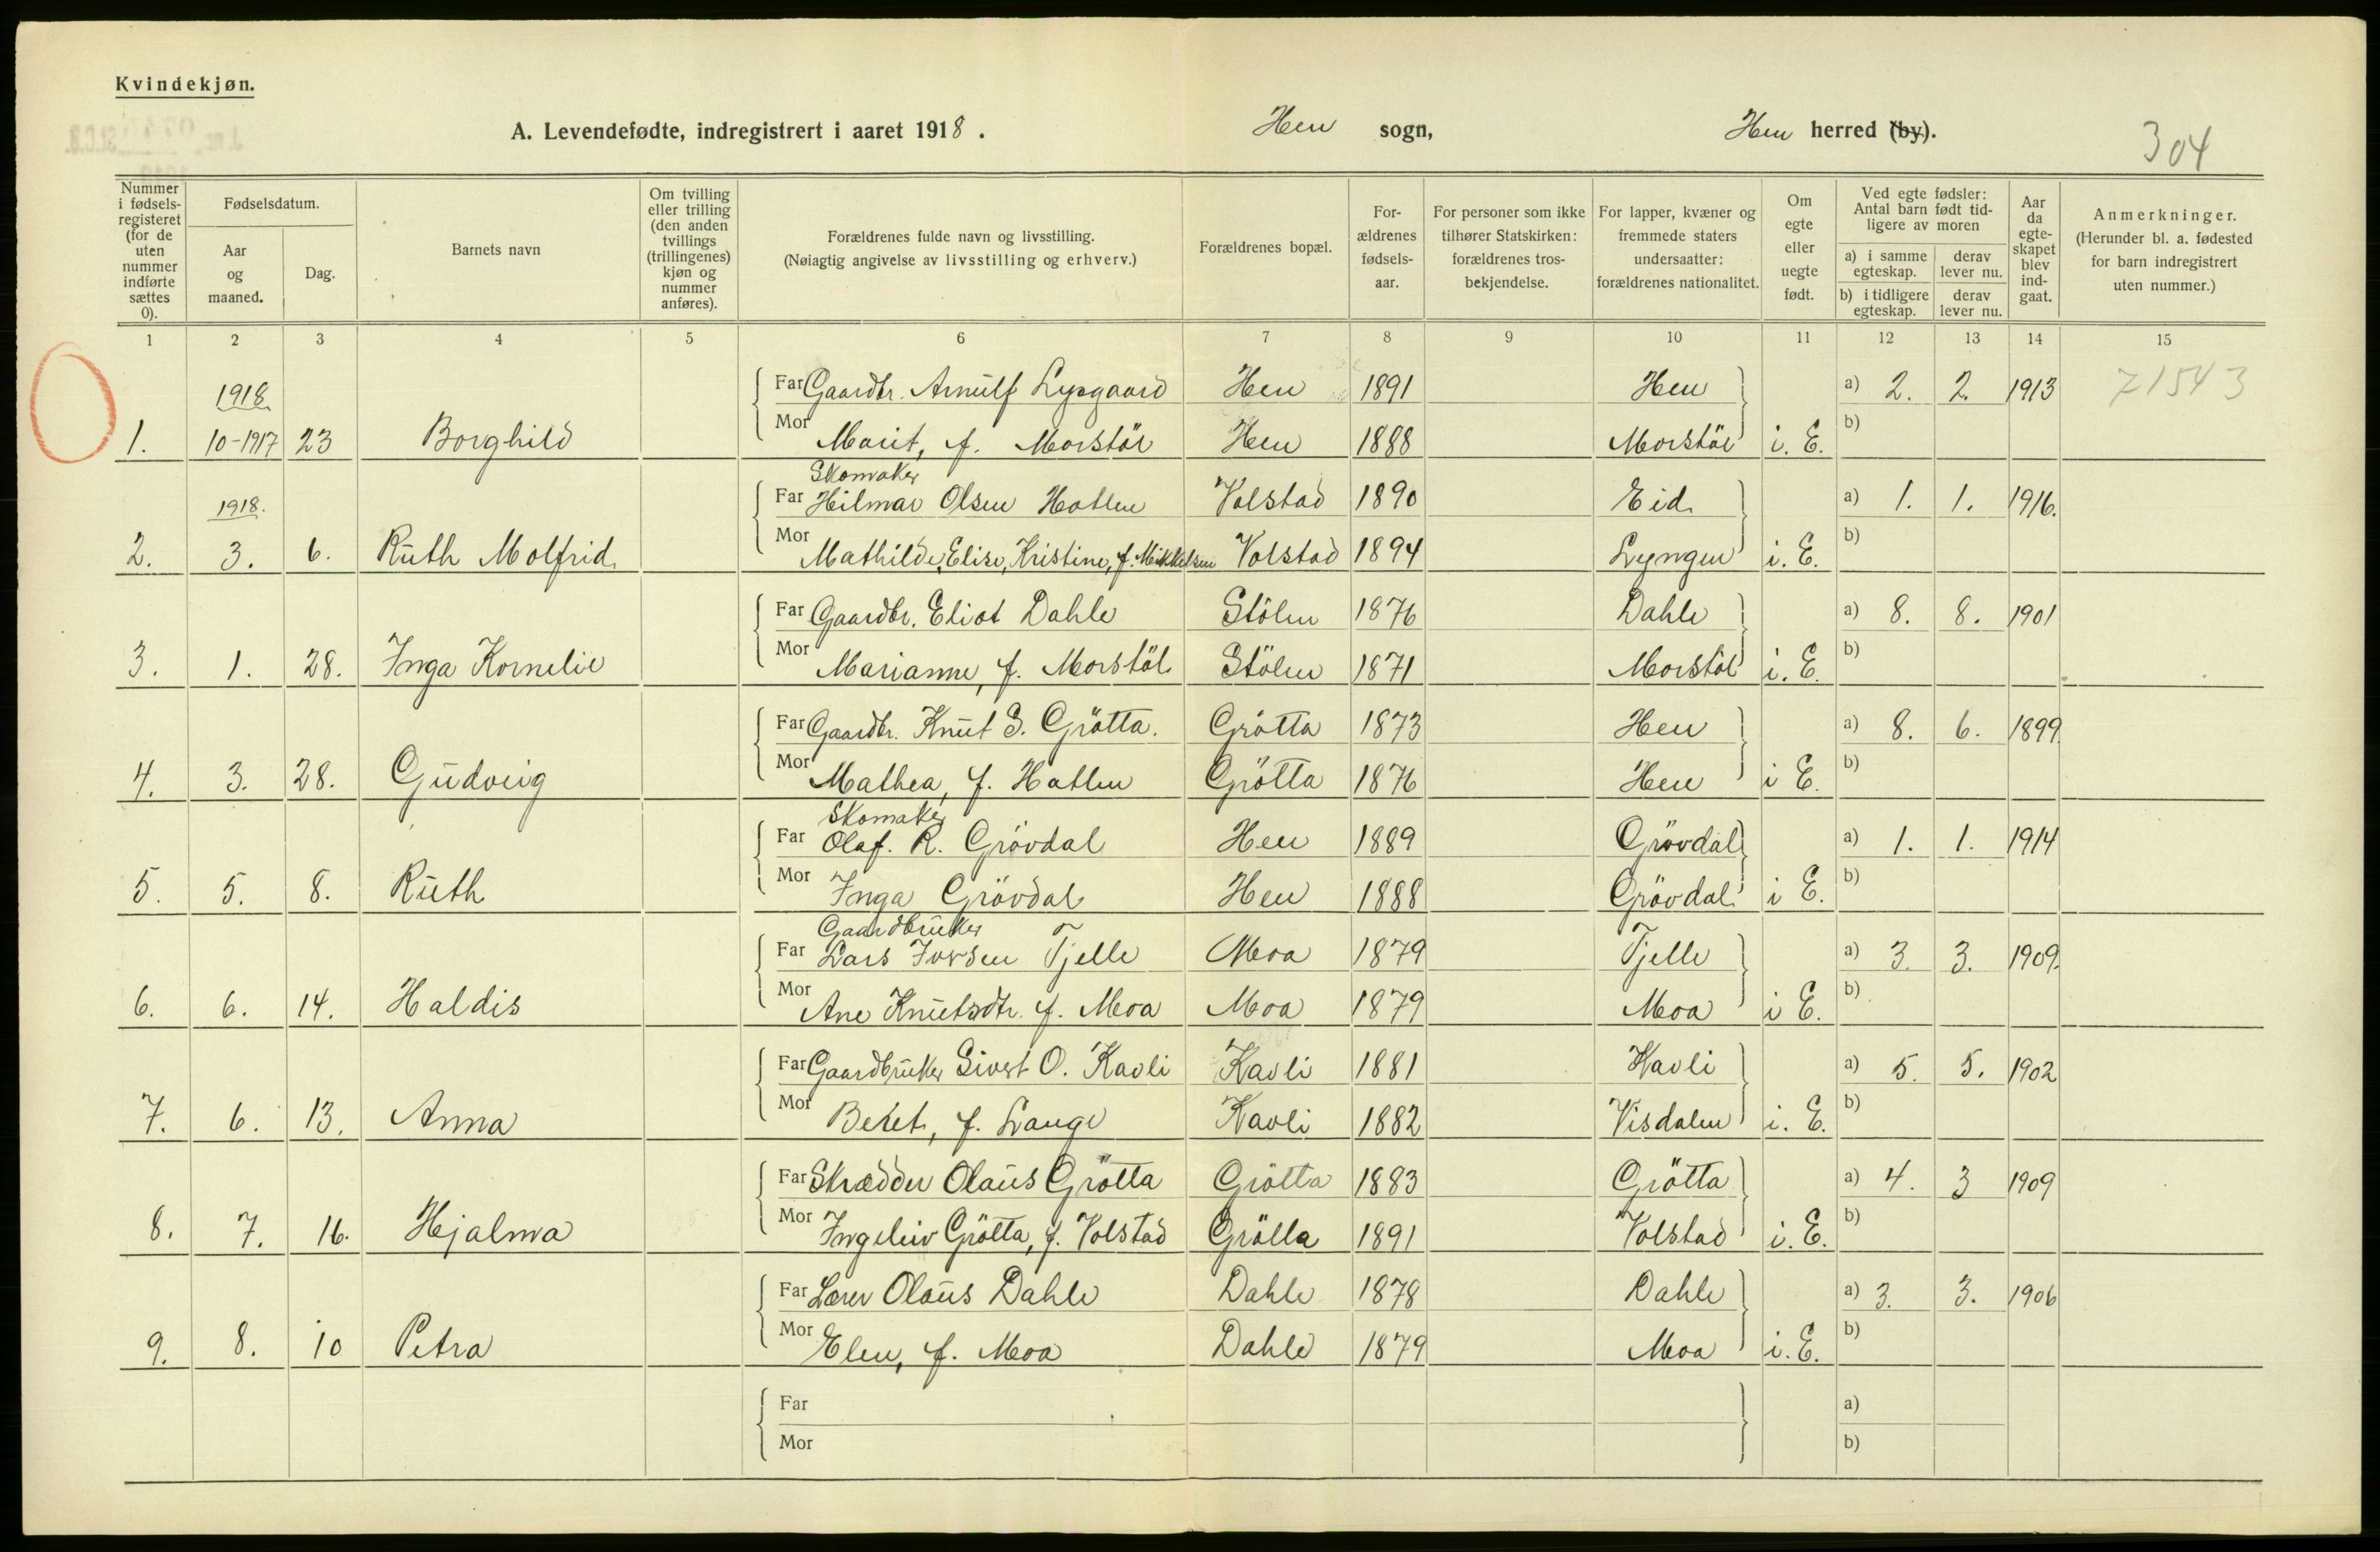 Kvindekjøn.
A. Levendefødte, indregistrert i aaret 1918. Hen sogn, Hen herred (by).
304
Nummer i fødselsregisteret (for de uten nummer indførte sættes 0).
Fødselsdatum.
Aar og maaned.
Dag.
Barnets navn
Om tvilling eller trilling (den anden tvillings (trillingenes) kjøn og nummer anføres).
Forældrenes fulde navn og livsstilling.
(Nøiagtig angivelse av livsstilling og erhverv.)
Forældrenes bopæl.
For-ældrenes fødsels-aar.
For personer som ikke tilhører Statskirken: forældrenes tros-bekjendelse.
For lapper, kvæner og fremmede staters undersaatter: forældrenes nationalitet.
Om egte eller uegte født.
Ved egte fødsler: Antal barn født tid-ligere av moren
a) i samme egteskap.
derav lever nu.
b) i tidligere egteskap.
derav lever nu.
Aar da egte-skapet blev ind-gaat.
Anmerkninger.
(Herunder bl. a. fødested for barn indregistrert uten nummer.)
1 2 3 4 5 6 7 8 9 10 11 12 13 14 15
1918
Far Gaardbr. Arnulf Lysgaard Hen 1891 Hen a) 2. 2. 1913 71543
1. 10-1917 23 Borghild Mor Marit, f. Morstöl Hen 1888 Morstöl i. E. b)
Skomaker
1918. Far Hilmar Olsen Hatlen Volstad 1890 Eid a) 1. 1. 1916.
2. 3. 6. Ruth Molfrid Mor Mathilde, Elise, Kristine, f. Mikkelsen Volstad 1894 Lyngen i. E. b)
Far Gaardbr. Eliot Dahle Stölen 1876 Dahle a) 8. 8. 1901
3. 1. 28. Inga Kornelie Mor Marianne, f. Morstöl Stölen 1871 Morstöl i. E. b)
Far Gaardbr. Knut S. Grötta. Grötta 1873 Hen a) 8. 6. 1899.
4. 3. 28. Gudveig Mor Mathea, f. Hatlen Grötta 1876 Hen i E. b)
Skomaker
Far Olaf. R. Grövdal Hen 1889 Grövdal a) 1. 1. 1914
5. 5. 8. Ruth Mor Inga Grövdal Hen 1888 Grövdal i E. b)
Gaardbruker
Far Lars Iversen Tjelle Moa 1879 Tjelle a) 3. 3. 1909.
6. 6. 14. Haldis Mor Ane Knutsdtr. f. Moa Moa 1879 Moa i E. b)
Far Gaardbruker Sivert O. Kavli Kavli 1881 Kavli a) 5. 5. 1902
7. 6. 13. Anna Mor Beret, f. Lange Kavli 1882 Visdalen i. E. b)
Far Skrædder Olaus Grötta Grötta 1883 Grötta a) 4. 3 1909
8. 7. 16. Hjalma Mor Ingeleiv Grötta, f. Volstad Grötta 1891 Volstad i. E. b)
Far Lærer Olaus Dahle Dahle 1878 Dahle a) 3. 3. 1906
9. 8. 10 Petra Mor Elen, f. Moa Dahle 1879 Moa i. E. b)
Far a)
Mor b)